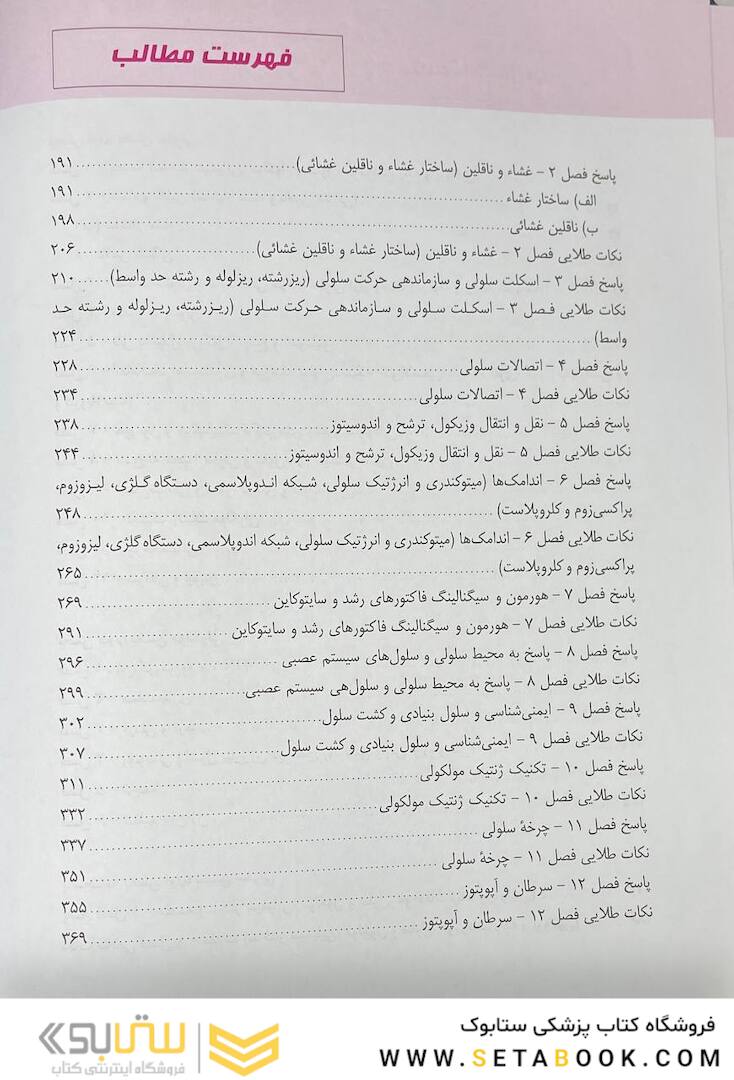 فهرست مطالب
پاسخ فصل ۲ - غشاء و ناقلین (ساختار غشاء و ناقلین غشائی) ۱۹۱
الف) ساختار غشاء ۱۹۱
ب) ناقلین غشائی ۱۹۸
نکات طلایی فصل ۲ - غشاء و ناقلین (ساختار غشاء و ناقلین غشائی) ۲۰۶
پاسخ فصل ۳ - اسکلت سلولی و سازماندهی حرکت سلولی (ریزرشته، ریزلوله و رشته حد واسط) ۲۱۰
نکات طلایی فصل ۳ - اسکلت سلولی و سازماندهی حرکت سلولی (ریزرشته، ریزلوله و رشته حد
واسط) ۲۲۴
پاسخ فصل ۴ - اتصالات سلولی ۲۲۸
نکات طلایی فصل ۴ - اتصالات سلولی ۲۳۴
پاسخ فصل ۵ - نقل و انتقال وزیکول، ترشح و اندوسیتوز ۲۳۸
نکات طلایی فصل ۵ - نقل و انتقال وزیکول، ترشح و اندوسیتوز ۲۴۴
پاسخ فصل ۶ - اندامک‌ها (میتوکندری و انرژتیک سلولی، شبکه اندوپلاسمی، دستگاه گلژی، لیزوزوم،
پراکسی‌زوم و کلروپلاست) ۲۴۸
نکات طلایی فصل ۶ - اندامک‌ها (میتوکندری و انرژتیک سلولی، شبکه اندوپلاسمی، دستگاه گلژی، لیزوزوم،
پراکسی‌زوم و کلروپلاست) ۲۶۵
پاسخ فصل ۷ - هورمون و سیگنالینگ فاکتورهای رشد و سایتوکاین ۲۶۹
نکات طلایی فصل ۷ - هورمون و سیگنالینگ فاکتورهای رشد و سایتوکاین ۲۹۱
پاسخ فصل ۸ - پاسخ به محیط سلولی و سلول‌های سیستم عصبی ۲۹۶
نکات طلایی فصل ۸ - پاسخ به محیط سلولی و سلول‌هی سیستم عصبی ۲۹۹
پاسخ فصل ۹ - ایمنی‌شناسی و سلول بنیادی و کشت سلول ۳۰۲
نکات طلایی فصل ۹ - ایمنی‌شناسی و سلول بنیادی و کشت سلول ۳۰۷
پاسخ فصل ۱۰ - تکنیک ژنتیک مولکولی ۳۱۱
نکات طلایی فصل ۱۰ - تکنیک ژنتیک مولکولی ۳۳۲
پاسخ فصل ۱۱ - چرخهٔ سلولی ۳۳۷
نکات طلایی فصل ۱۱ - چرخهٔ سلولی ۳۵۱
پاسخ فصل ۱۲ - سرطان و آپوپتوز ۳۵۵
نکات طلایی فصل ۱۲ - سرطان و آپوپتوز ۳۶۹
فروشگاه کتاب پزشکی ستابوک
WWW.SETABOOK.COM
ستابوک
فروشگاه اینترنتی کتاب